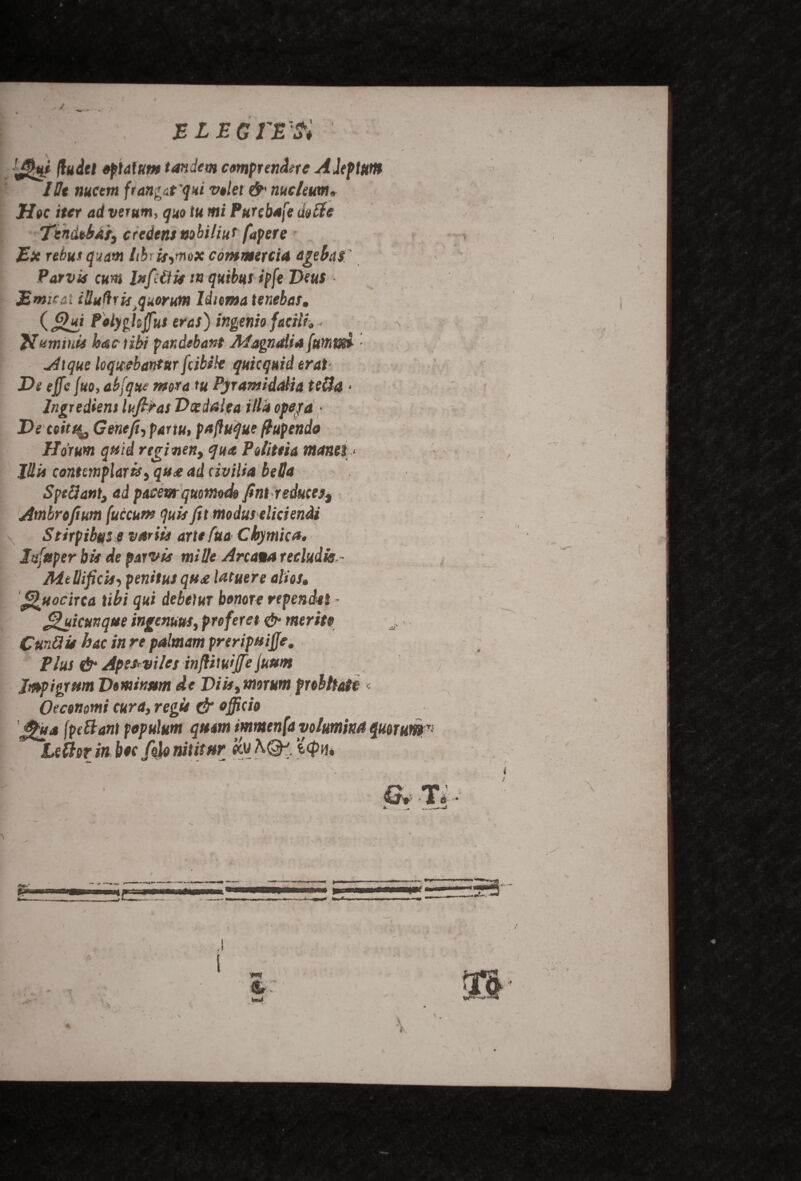 ELEGIES
Qui studet optatum tandem comprendere Adeptum
Ille nucem frangat qui volet & nucleum.
Hoc iter ad verum, quo tu mi Purchase docte
Tendebas, credens nobilius sapere
Ex rebus quam libris, mox commercia agebas
Parvis cum Insectis in quibus ipse Deus
Emicat illustris, quorum Idioma tenebas.
(Qui Polyglossus eras) ingenio facili,
Numinis hac tibi pandebant Magnalia summi
Atque loquebantur scibile quicquid erat
De esse suo, absque mora tu Pyramidalia tecta
Ingrediens lustras Dædalea illa opera
De coitu, Genesi, partu, pastuque stupendo
Horum quid reginen, quæ Politeia manet
Illis contemplaris, quæ ad civilia bella
Spectant, ad pacem quomodo sint reduces,
Ambrosium succum quis sit modus eliciendi
Stirpibus e variis arte sua Chymica.
Insuper his de parvis mille Arcana recludis
Mellificis, penitus quæ latuere alios.
Quocirca tibi qui debetur honore rependet
Quicunque ingenuus, proferet & merito
Cunctis hac in re palmam preripuisse.
Plus & Apes viles instituisse suum
Impigrum Dominum de Diis, morum probitate
Oeconomi cura, regis & officio
Quæ spectant populum quam immensa volumina quorum
Lector in hoc solo nititur
G. T.
To